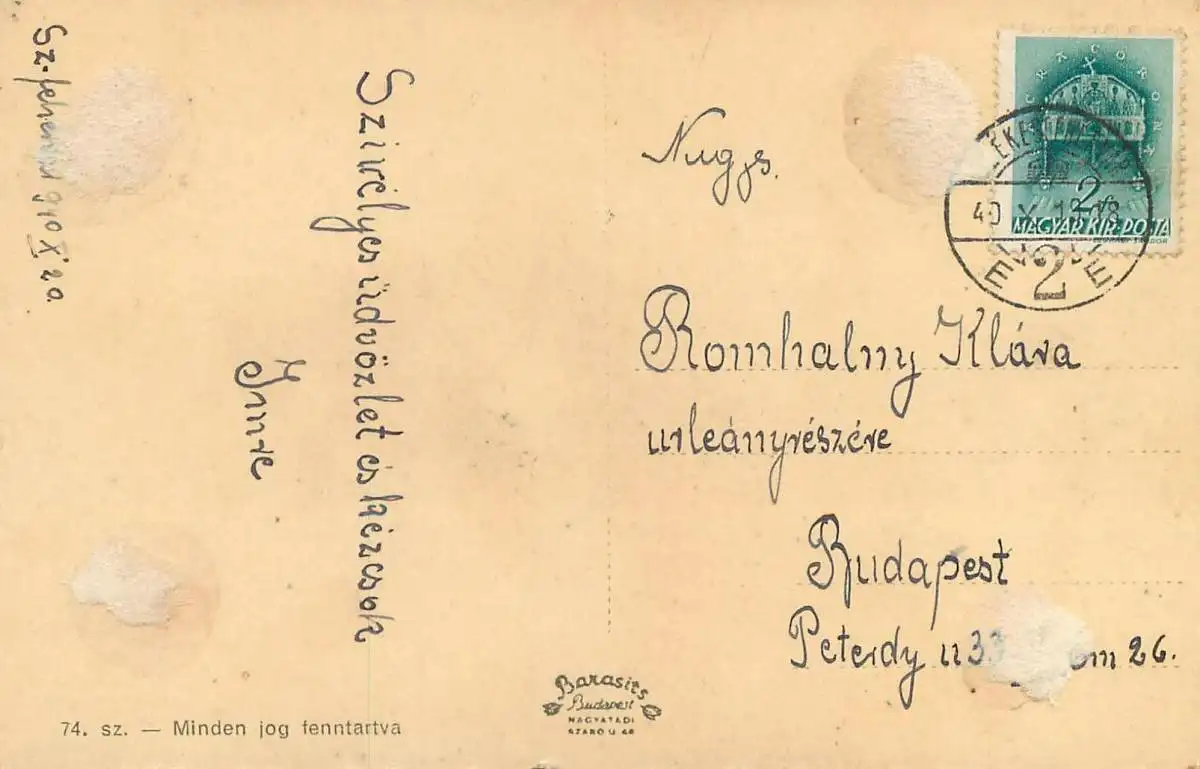 Sz.fehérvár 940 X 20
Szivélyes üdvözlet és kézcsok
Imre
Nugys.
Romhalmy Klára
urleányrészére
Budapest
Peterdy u 33 em 26.
SACRA CORONA
2f
MAGYAR KIR. POSTA
40 X
2
E E
74. sz. — Minden jog fenntartva
Barasits
Budapest
NAGYATÁDI
SZABÓ U 48